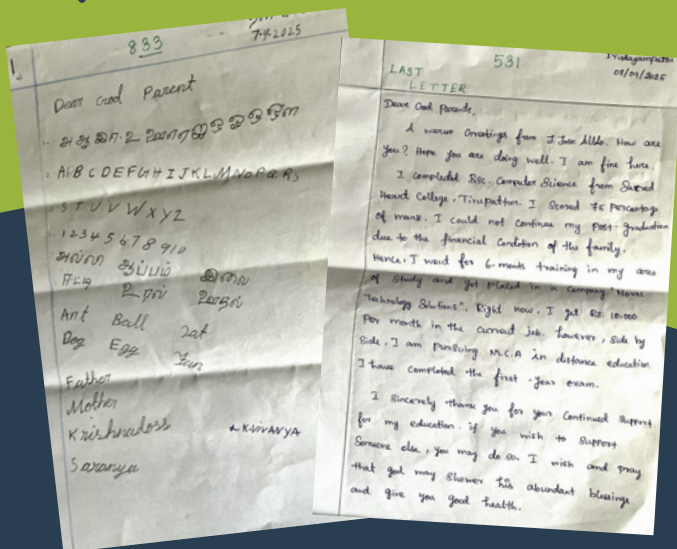 1.
833
7.9.2025
Dear God Parent
அ ஆ இ ஈ உ ஊ எ ஏ ஐ ஒ ஓ ஔ
ABCDEFGHIJKLMNOPQRS
STUVWXYZ
12345678910
அம்மா ஆப்பம் இலை
ஈட்டி உரல் ஊதல்
Ant Ball Cat
Dog Egg Fan
Father
Mother
Krishnadoss K.VIVANYA
Saranya
531
LAST
LETTER
Dear God Parents,
A warm Greetings from J Jose Aldo. How are
you? Hope you are doing well. I am fine here.
I completed BSc. Computer Science from Sacred
Heart College, Tirupattur. I scored 75 percentage
of mark. I could not continue my Post-graduation
due to the financial condition of the family.
Hence, I went for 6-monts training in my area
of study and get placed in a company "
Technology Solutions". Right now, I get Rs. 10.000
Per month in the current job. however, side by
side, I am pursuing M.C.A in distance education.
I have completed the first-year exam.
I sincerely thank you for your continued support
for my education. if you wish to support
Someone else, you may do so. I wish and pray
that god may shower his abundant blessings
and give you good health.